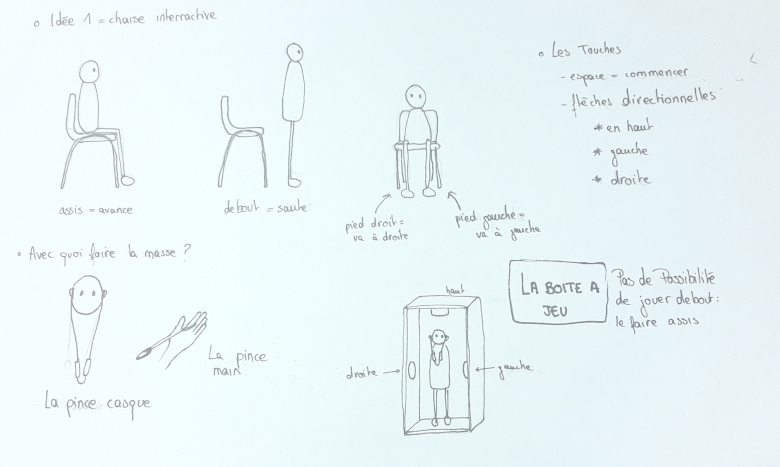 o Idée 1 = chaise interractive
assis = avance
debout = saute
pied droit =
va à droite
pied gauche =
va à gauche
o Les Touches
- espace = commencer
- flèches directionnelles
* en haut
* gauche
* droite
o Avec quoi faire la masse ?
La pince casque
La pince
main
haut
droite
gauche
LA BOITE A
JEU
Pas de Possibilité
de jouer debout :
le faire assis